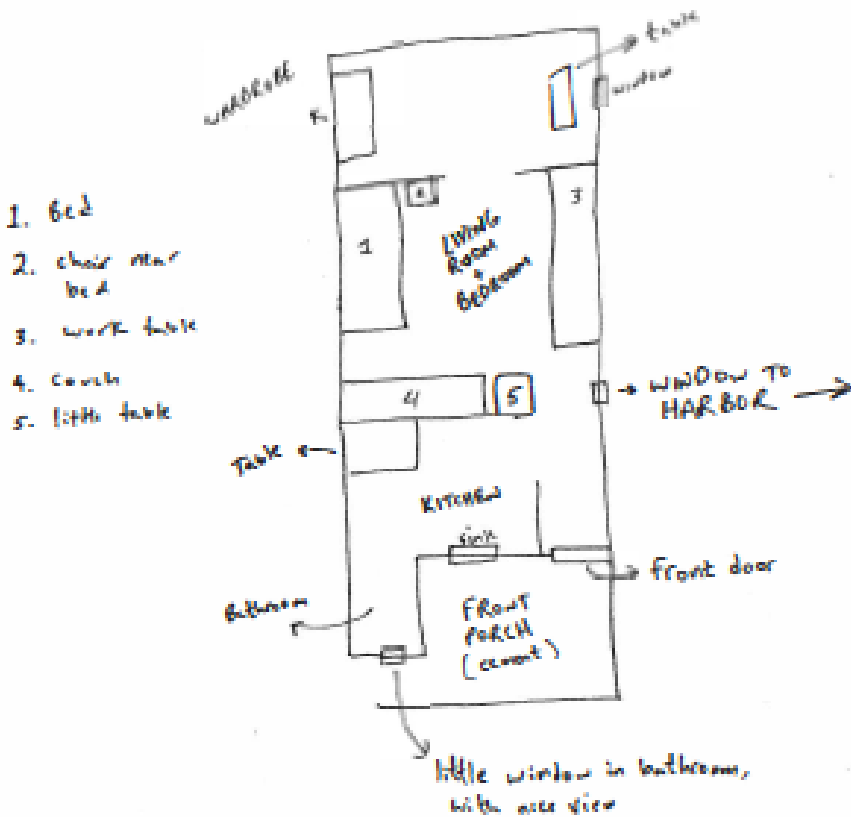 table
WARDROBE
window
1. Bed
2. chair near
bed
3. work table
4. Couch
5. little table
1
3
LIVING
ROOM
+
BEDROOM
4
5
→ WINDOW TO
HARBOR →
Table
KITCHEN
sink
front door
Bathroom
FRONT
PORCH
(cement)
little window in bathroom,
with nice view